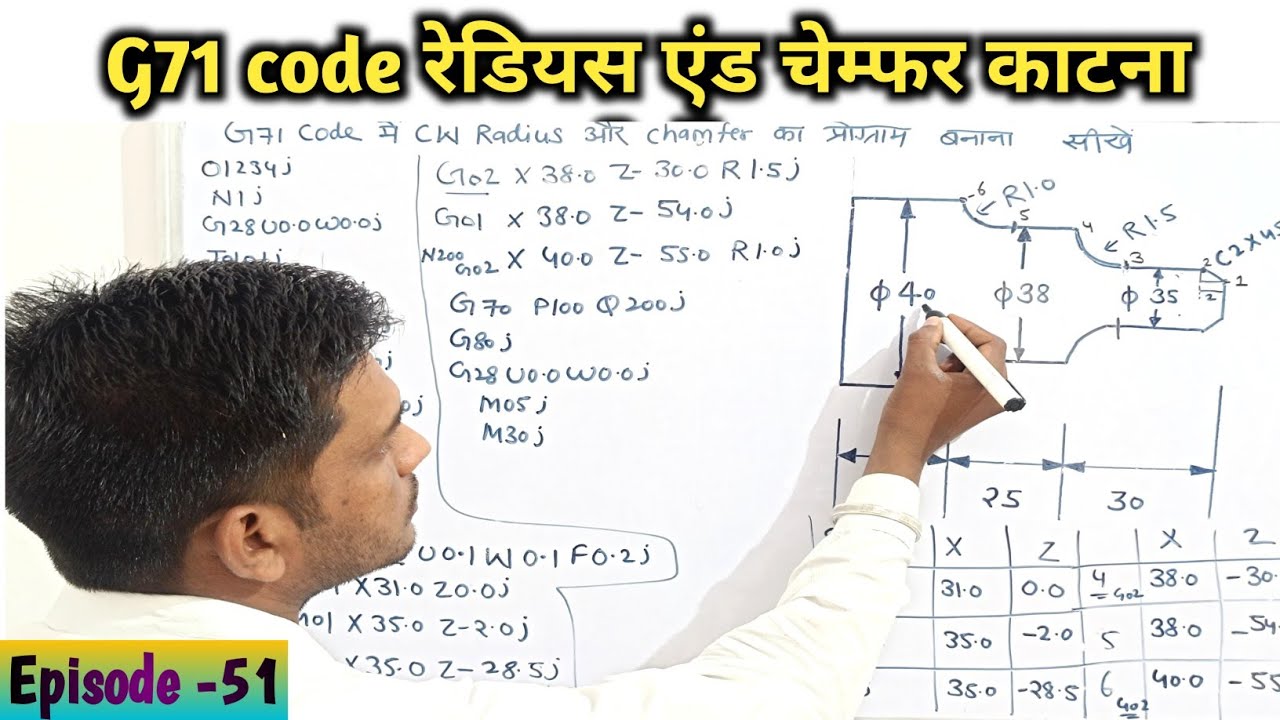 G71 code रेडियस एंड चेम्फर काटना
G71 Code में CW Radius और chamfer का प्रोग्राम बनाना सीखें
O1234;
N1;
G28 U0.0 W0.0;
U0.1 W0.1 F0.2;
X31.0 Z0.0;
X35.0 Z-2.0;
X35.0 Z-28.5;
G02 X38.0 Z-30.0 R1.5;
G01 X38.0 Z-54.0;
N200 G02 X40.0 Z-55.0 R1.0;
G70 P100 Q200;
G80;
G28 U0.0 W0.0;
M05;
M30;
6 R1.0
5
4 R1.5
3
2 C2X45
1
2
ϕ 40 ϕ 38 ϕ 35
25 30
X Z X Z
31.0 0.0 4 G02 38.0 -30.
35.0 -2.0 5 38.0 -54.
35.0 -28.5 6 G02 40.0 -55
Episode -51